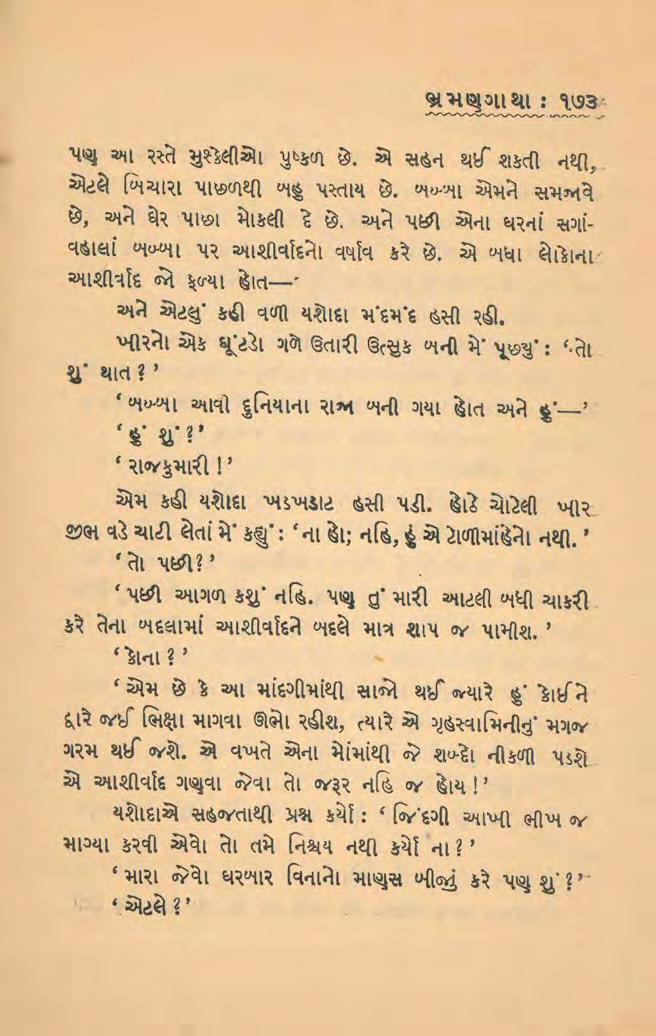 ભ્રમણગાથા : ૧૭૩
પણ આ રસ્તે મુશ્કેલીઓ પુષ્કળ છે. એ સહન થઈ શકતી નથી,
એટલે બિચારા પાછળથી બહુ પસ્તાય છે. બબ્બા એમને સમજાવે
છે, અને ઘેર પાછા મોકલી દે છે. અને પછી એના ઘરનાં સગાં-
વહાલાં બબ્બા પર આશીર્વાદનો વર્ષાવ કરે છે. એ બધા લોકોના
આશીર્વાદ જો ફળ્યા હોત—'
અને એટલું કહી વળી યશોદા મંદમંદ હસી રહી.
ખીરનો એક ઘૂંટડો ગળે ઉતારી ઉત્સુક બની મેં પૂછ્યું : ‘તો
શું થાત ? ’
‘ બબ્બા આવી દુનિયાના રાજા બની ગયા હોત અને હું—’
‘ હું શું ?’
‘ રાજકુમારી ! ’
એમ કહી યશોદા ખડખડાટ હસી પડી. હોઠે ચોટેલી ખીર
જીભ વડે ચાટી લેતાં મેં કહ્યું : ‘ના હો; નહિ, હું એ ટોળીમાંહેનો નથી. ’
‘ તો પછી? ’
‘ પછી આગળ કશું નહિ. પણ તું મારી આટલી બધી ચાકરી
કરે તેના બદલામાં આશીર્વાદને બદલે માત્ર શાપ જ પામીશ. ’
‘ કોના ? ’
‘ એમ છે કે આ માંદગીમાંથી સાજો થઈ જ્યારે હું કોઈને
દ્વારે જઈ ભિક્ષા માગવા ઊભો રહીશ, ત્યારે એ ગૃહસ્વામિનીનું મગજ
ગરમ થઈ જશે. એ વખતે એના મોંમાંથી જે શબ્દો નીકળી પડશે
એ આશીર્વાદ ગણુવા જેવા તો જરૂર નહિ જ હોય ! ’
યશોદાએ સહજતાથી પ્રશ્ન કર્યો : ‘ જિંદગી આખી ભીખ જ
માગ્યા કરવી એવો તો તમે નિશ્ચય નથી કર્યો ના ? ’
‘ મારા જેવો ઘરબાર વિનાનો માણસ બીજું કરે પણ શું ? ’
‘ એટલે ? ’